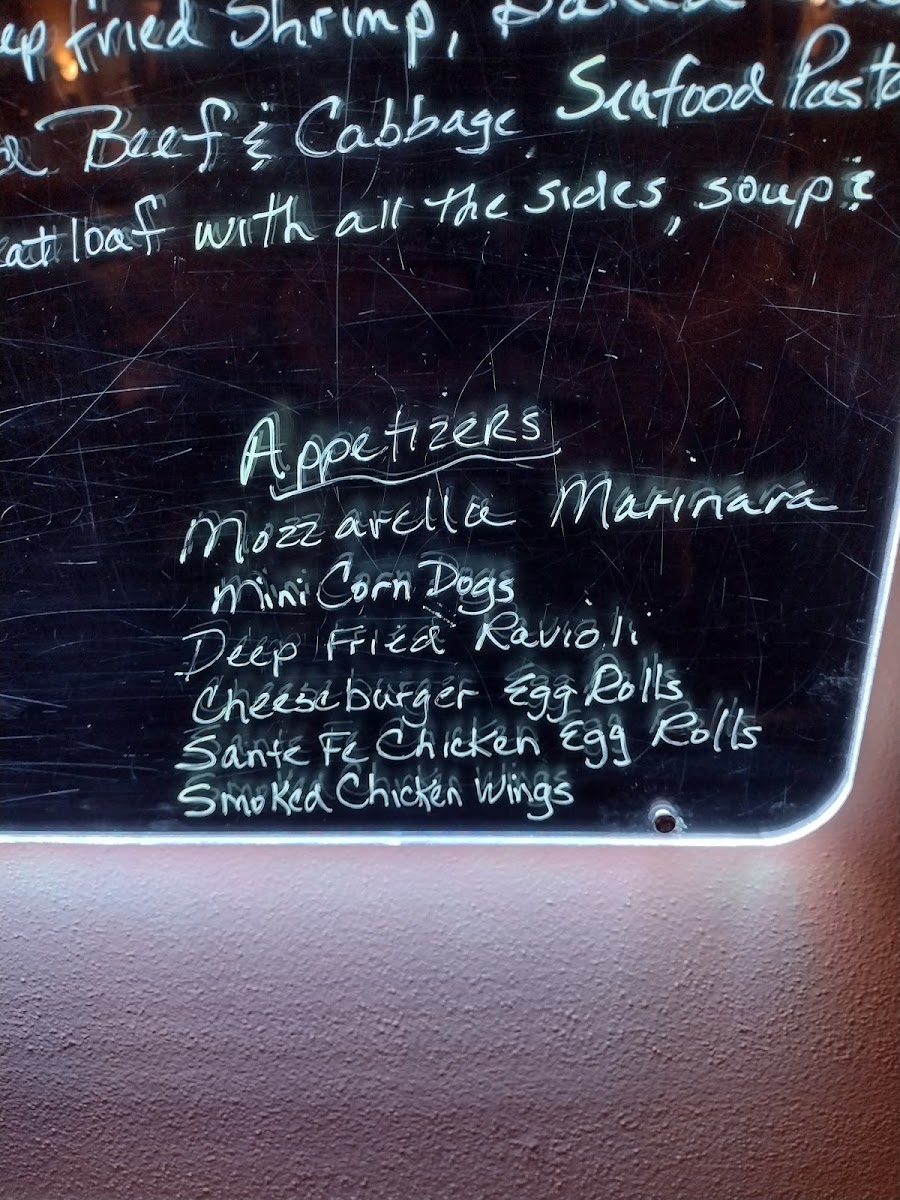 ep Fried Shrimp, Baked
Beef & Cabbage Seafood Pasta
eatloaf with all the sides, soup &
Appetizers
Mozzarella Marinara
Mini Corn Dogs
Deep Fried Ravioli
Cheeseburger Egg Rolls
Sante Fe Chicken Egg Rolls
Smoked Chicken Wings